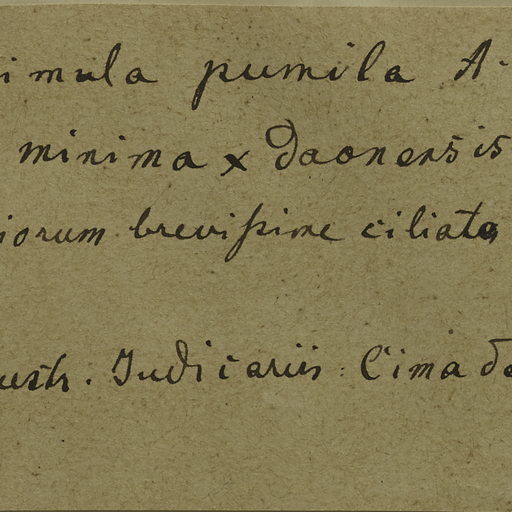 imula pumila A.
minima x daonensis
iorum brevissime ciliata
ustr. Judicariis: Cima de